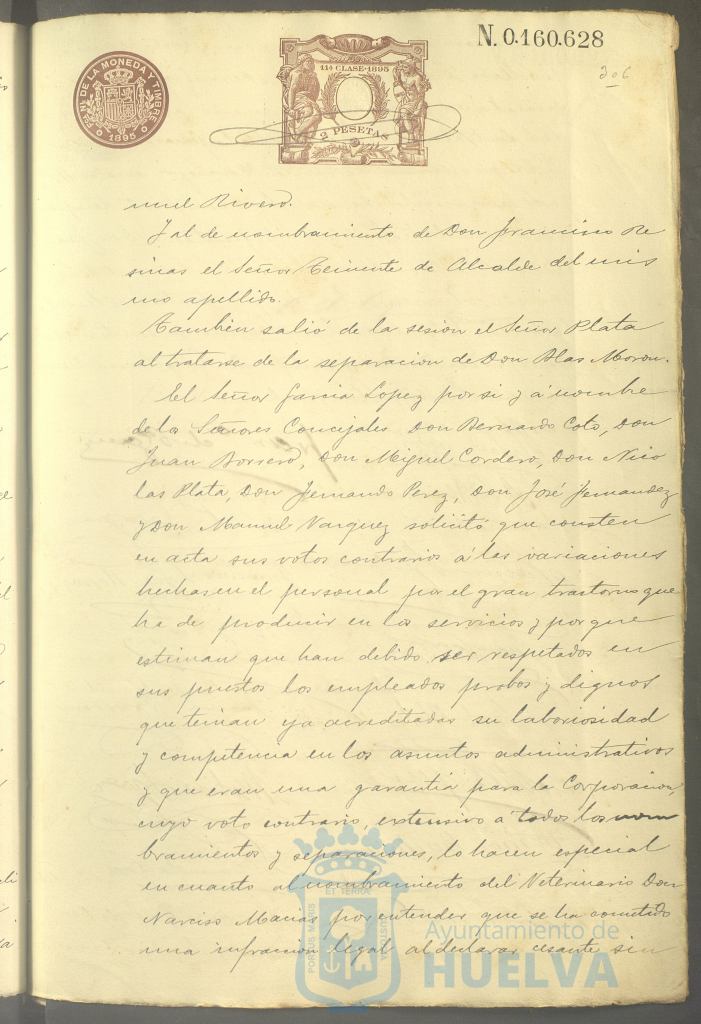 N. 0.160.628
306
FCA. NL. DE LA MONEDA Y TIMBRE
1895
11ª CLASE·1895
2 PESETAS
nuel Rivero.
Y al de nombramiento de Don Francisco Re
sinas el Señor Teniente de Alcalde del mis
mo apellido.
Tambien salió de la sesion el Señor Plata
al tratarse de la separacion de Don Blas Moron.
El Señor Garcia Lopez por si y á nombre
de los Señores Concejales Don Bernardo Coto, Don
Juan Borrero, Don Miguel Cordero, Don Nico
las Plata, Don Fernando Perez, Don José Fernandez
y Don Manuel Vazquez solicitó que consten
en acta sus votos contrarios á las variaciones
hechas en el personal por el gran trastorno que
ha de producir en los servicios y porque
estiman que han debido ser respetados en
sus puestos los empleados probos y dignos
que tenian ya acreditadas su laboriosidad
y competencia en los asuntos administrativos
y que eran una garantia para la Corporacion,
cuyo voto contrario, extensivo a todos los nom
bramientos y separaciones, lo hacen especial
en cuanto al nombramiento del Veterinario Don
Narciso Macias por entender que se ha cometido
una infraccion legal al declarar cesante sin
PORTUS MARIS ET TERRAE CUSTODIA
Ayuntamiento de
HUELVA